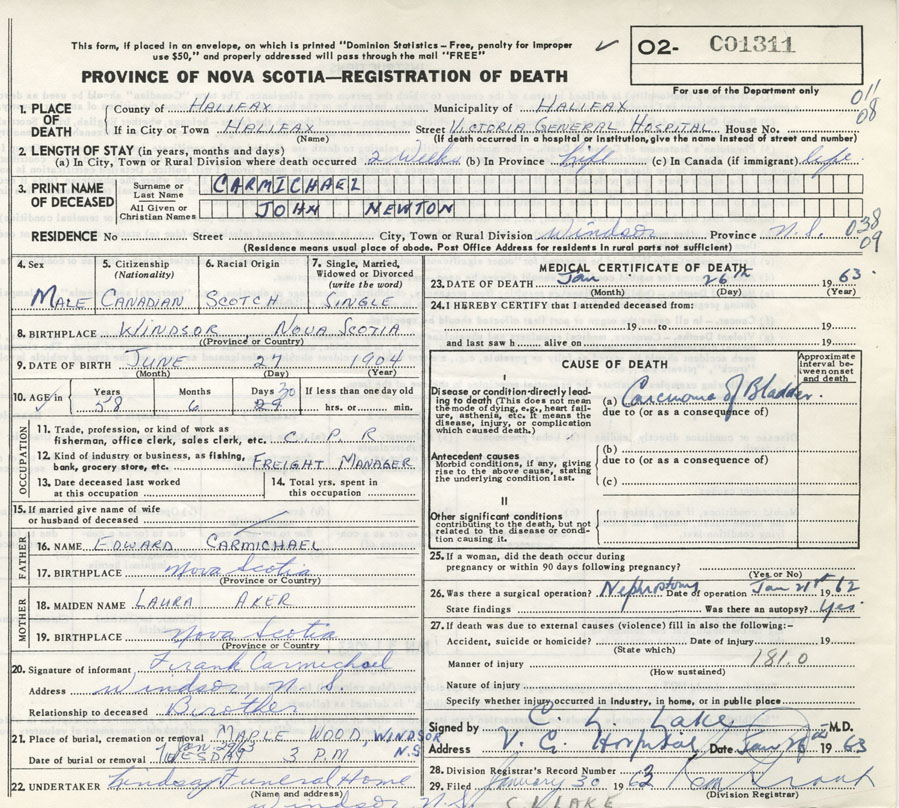 This form, if placed in an envelope, on which is printed "Dominion Statistics – Free, penalty for improper
use $50," and properly addressed will pass through the mail "FREE"
02- C01311
For use of the Department only
PROVINCE OF NOVA SCOTIA—REGISTRATION OF DEATH
011
08
1. PLACE OF DEATH County of HALIFAX Municipality of HALIFAX
If in City or Town HALIFAX Street VICTORIA GENERAL HOSPITAL House No.
(Name) (If death occurred in a hospital or institution, give the name instead of street and number)
2. LENGTH OF STAY (in years, months and days)
(a) In City, Town or Rural Division where death occurred 2 Weeks (b) In Province Life (c) In Canada (if immigrant) life
3. PRINT NAME OF DECEASED Surname or Last Name CARMICHAEL
All Given or Christian Names JOHN NEWTON
RESIDENCE No Street City, Town or Rural Division Windsor Province N.S. 038
09
(Residence means usual place of abode. Post Office Address for residents in rural parts not sufficient)
4. Sex 5. Citizenship (Nationality) 6. Racial Origin 7. Single, Married, Widowed or Divorced (write the word)
MALE CANADIAN SCOTCH SINGLE
8. BIRTHPLACE WINDSOR, NOVA SCOTIA
(Province or Country)
9. DATE OF BIRTH JUNE 27 1904
(Month) (Day) (Year)
10. AGE in Years Months Days 30 If less than one day old
58 6 29 hrs. or min.
OCCUPATION
11. Trade, profession or kind of work as
fisherman, office clerk, sales clerk, etc. C. P. R
12. Kind of industry or business, as fishing,
bank, grocery store, etc. FREIGHT MANAGER
13. Date deceased last worked at this occupation 14. Total yrs. spent in this occupation
15. If married give name of wife
or husband of deceased
FATHER
16. NAME EDWARD CARMICHAEL
17. BIRTHPLACE Nova Scotia
(Province or Country)
MOTHER
18. MAIDEN NAME LAURA AKER
19. BIRTHPLACE Nova Scotia
(Province or Country
20. Signature of informant Frank Carmichael
Address Windsor, N.S.
Relationship to deceased Brother
21. Place of burial, cremation or removal MAPLE WOOD, WINDSOR
N.S
Date of burial or removal Jan 29/63 TUESDAY 3 P.M
22. UNDERTAKER Lindsay Funeral Home
(Name and address)
Windsor N.S.
MEDICAL CERTIFICATE OF DEATH
23. DATE OF DEATH Jan 26th 1963.
(Month) (Day) (Year)
24. I HEREBY CERTIFY that I attended deceased from:
19 to 19
and last saw h alive on 19
CAUSE OF DEATH
Approximate interval between onset and death
I
Disease or condition directly leading to death (This does not mean the mode of dying, e.g., heart failure, asthenia, etc. It means the disease, injury, or complication which caused death.)
(a) Carcinoma of Bladder.
due to (or as a consequence of)
Antecedent causes
Morbid conditions, if any, giving rise to the above cause, stating the underlying condition last.
(b)
due to (or as a consequence of)
(c)
II
Other significant conditions
contributing to the death, but not related to the disease or condition causing it.
25. If a woman, did the death occur during
pregnancy or within 90 days following pregnancy?
(Yes or No)
26. Was there a surgical operation? Nephrostomy Date of operation Jan 21st 1962
State findings Was there an autopsy? Yes.
27. If death was due to external causes (violence) fill in also the following:–
Accident, suicide or homicide? Date of injury 19
(State which)
Manner of injury 181.0
(How sustained)
Nature of injury
Specify whether injury occurred in industry, in home, or in public place
Signed by C. L. Lake M.D.
Address V. G. Hospital Date Jan 26th 1963
28. Division Registrar's Record Number
29. Filed January 30 1963
(Division Registrar)
C.V. LAKE